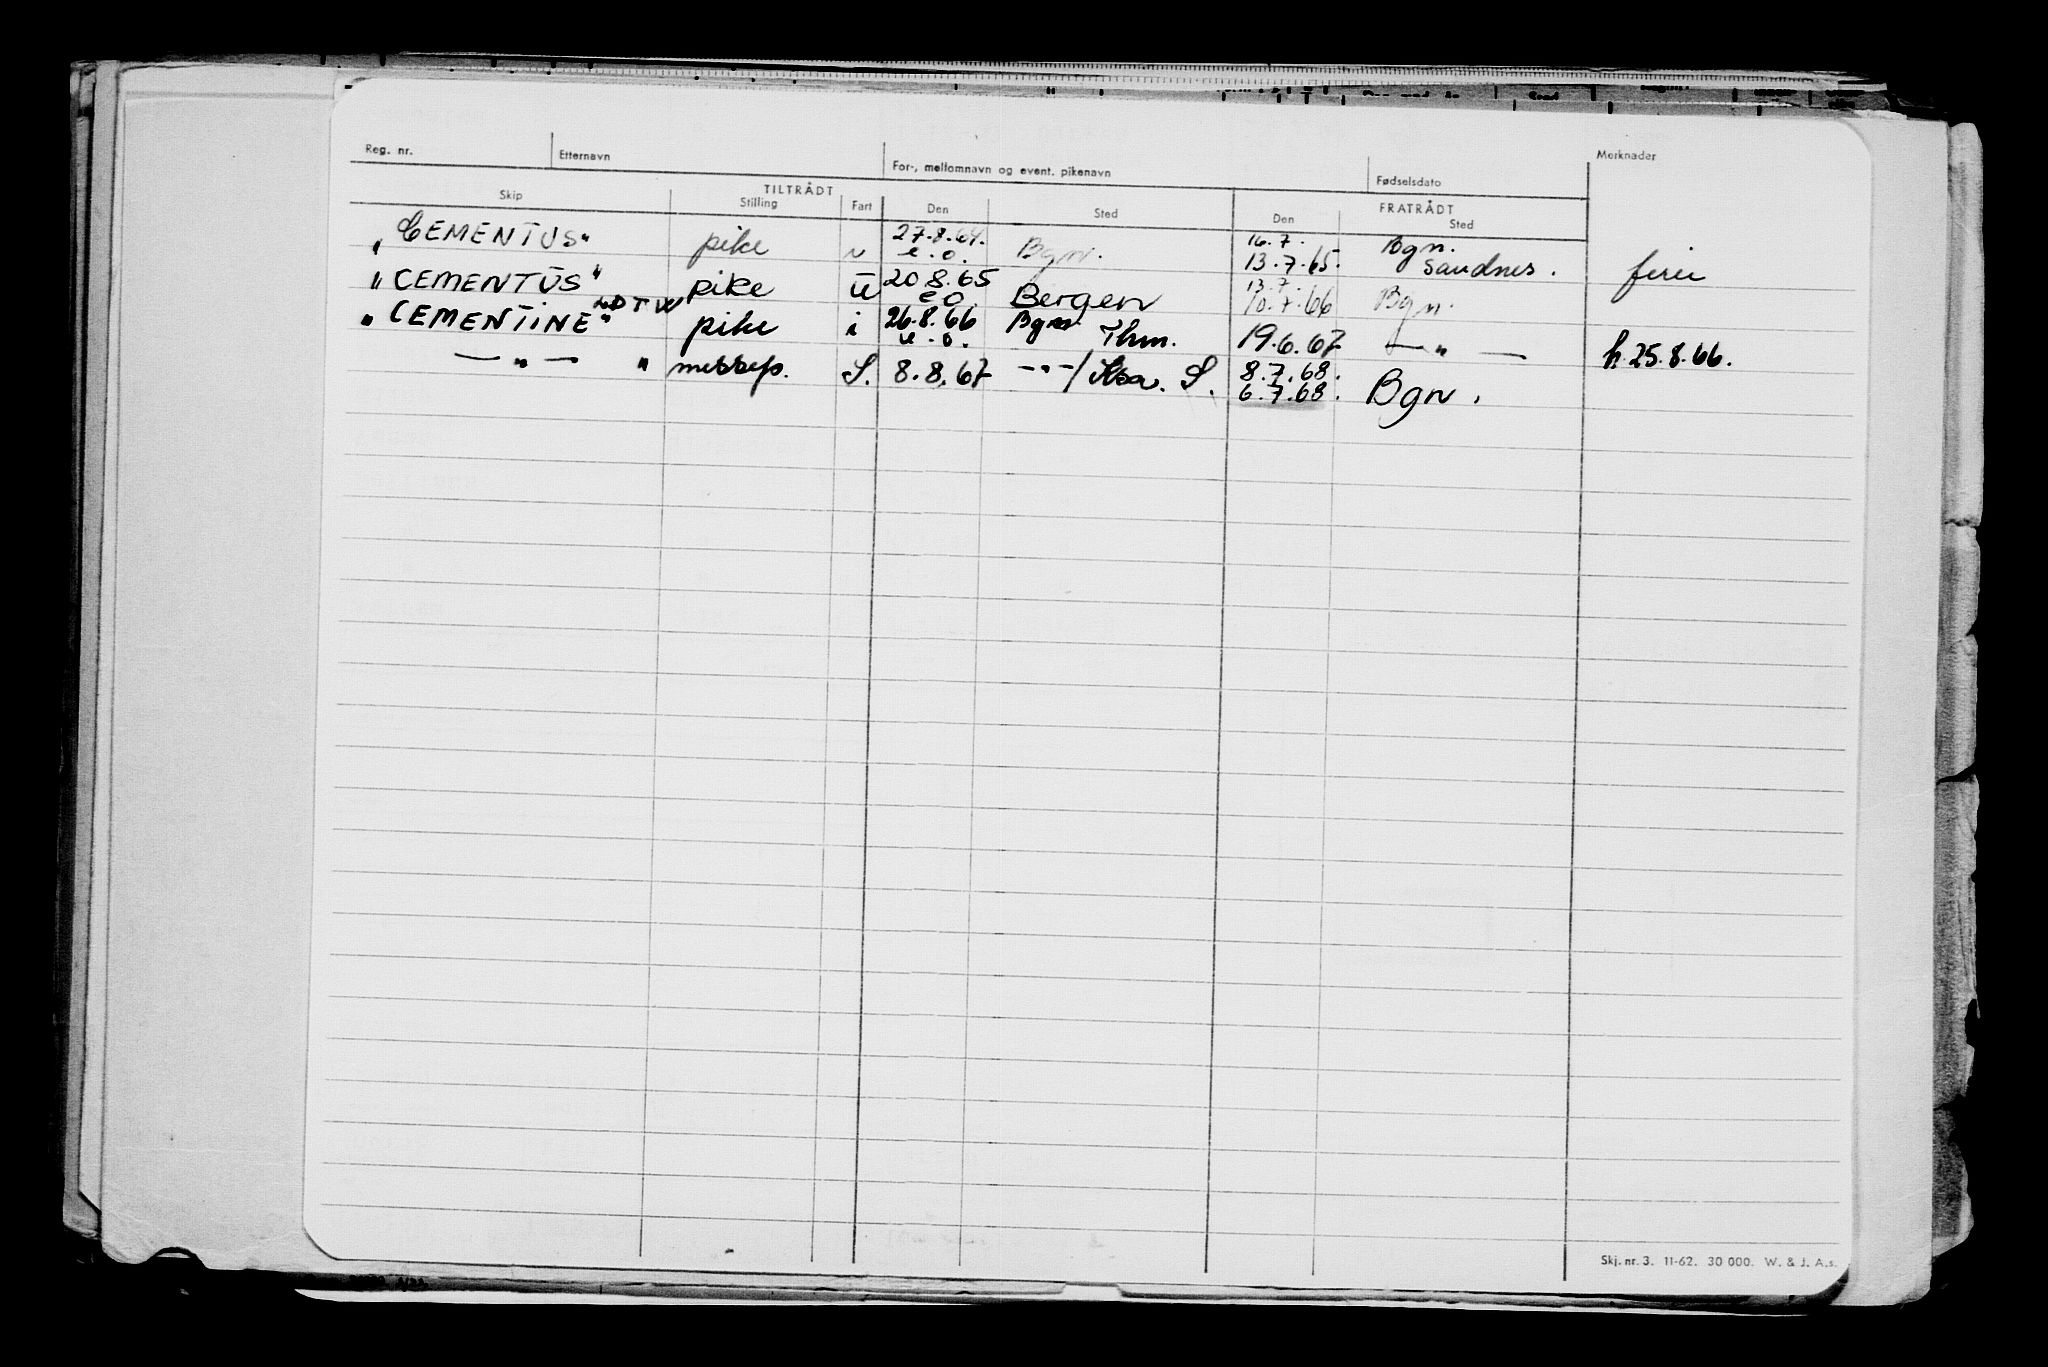 Reg. nr. Etternavn For-, mellomnavn og event. pikenavn Fødselsdato Merknader
TILTRÅDT FRATRÅDT
Skip Stilling Fart Den Sted Den Sted
"CEMENTUS" pike u 27.8.64. e.o. Bgn. 16.7. 13.7.65. Bgn. Sandnes. ferie
"CEMENTUS" pike U 20.8.65 e.o. Bergen 13.7. 10.7.66 Bgn.
"CEMENTINE" LDTW pike i 26.8.66 u.o. Bgn. Thm. 19.6.67 — " — h. 25.8.66.
— " — " messep. S. 8.8.67 - " - / S. 8.7.68. 6.7.68. Bgn.
Skj. nr. 3. 11-62. 30 000. W. & J. A.s.